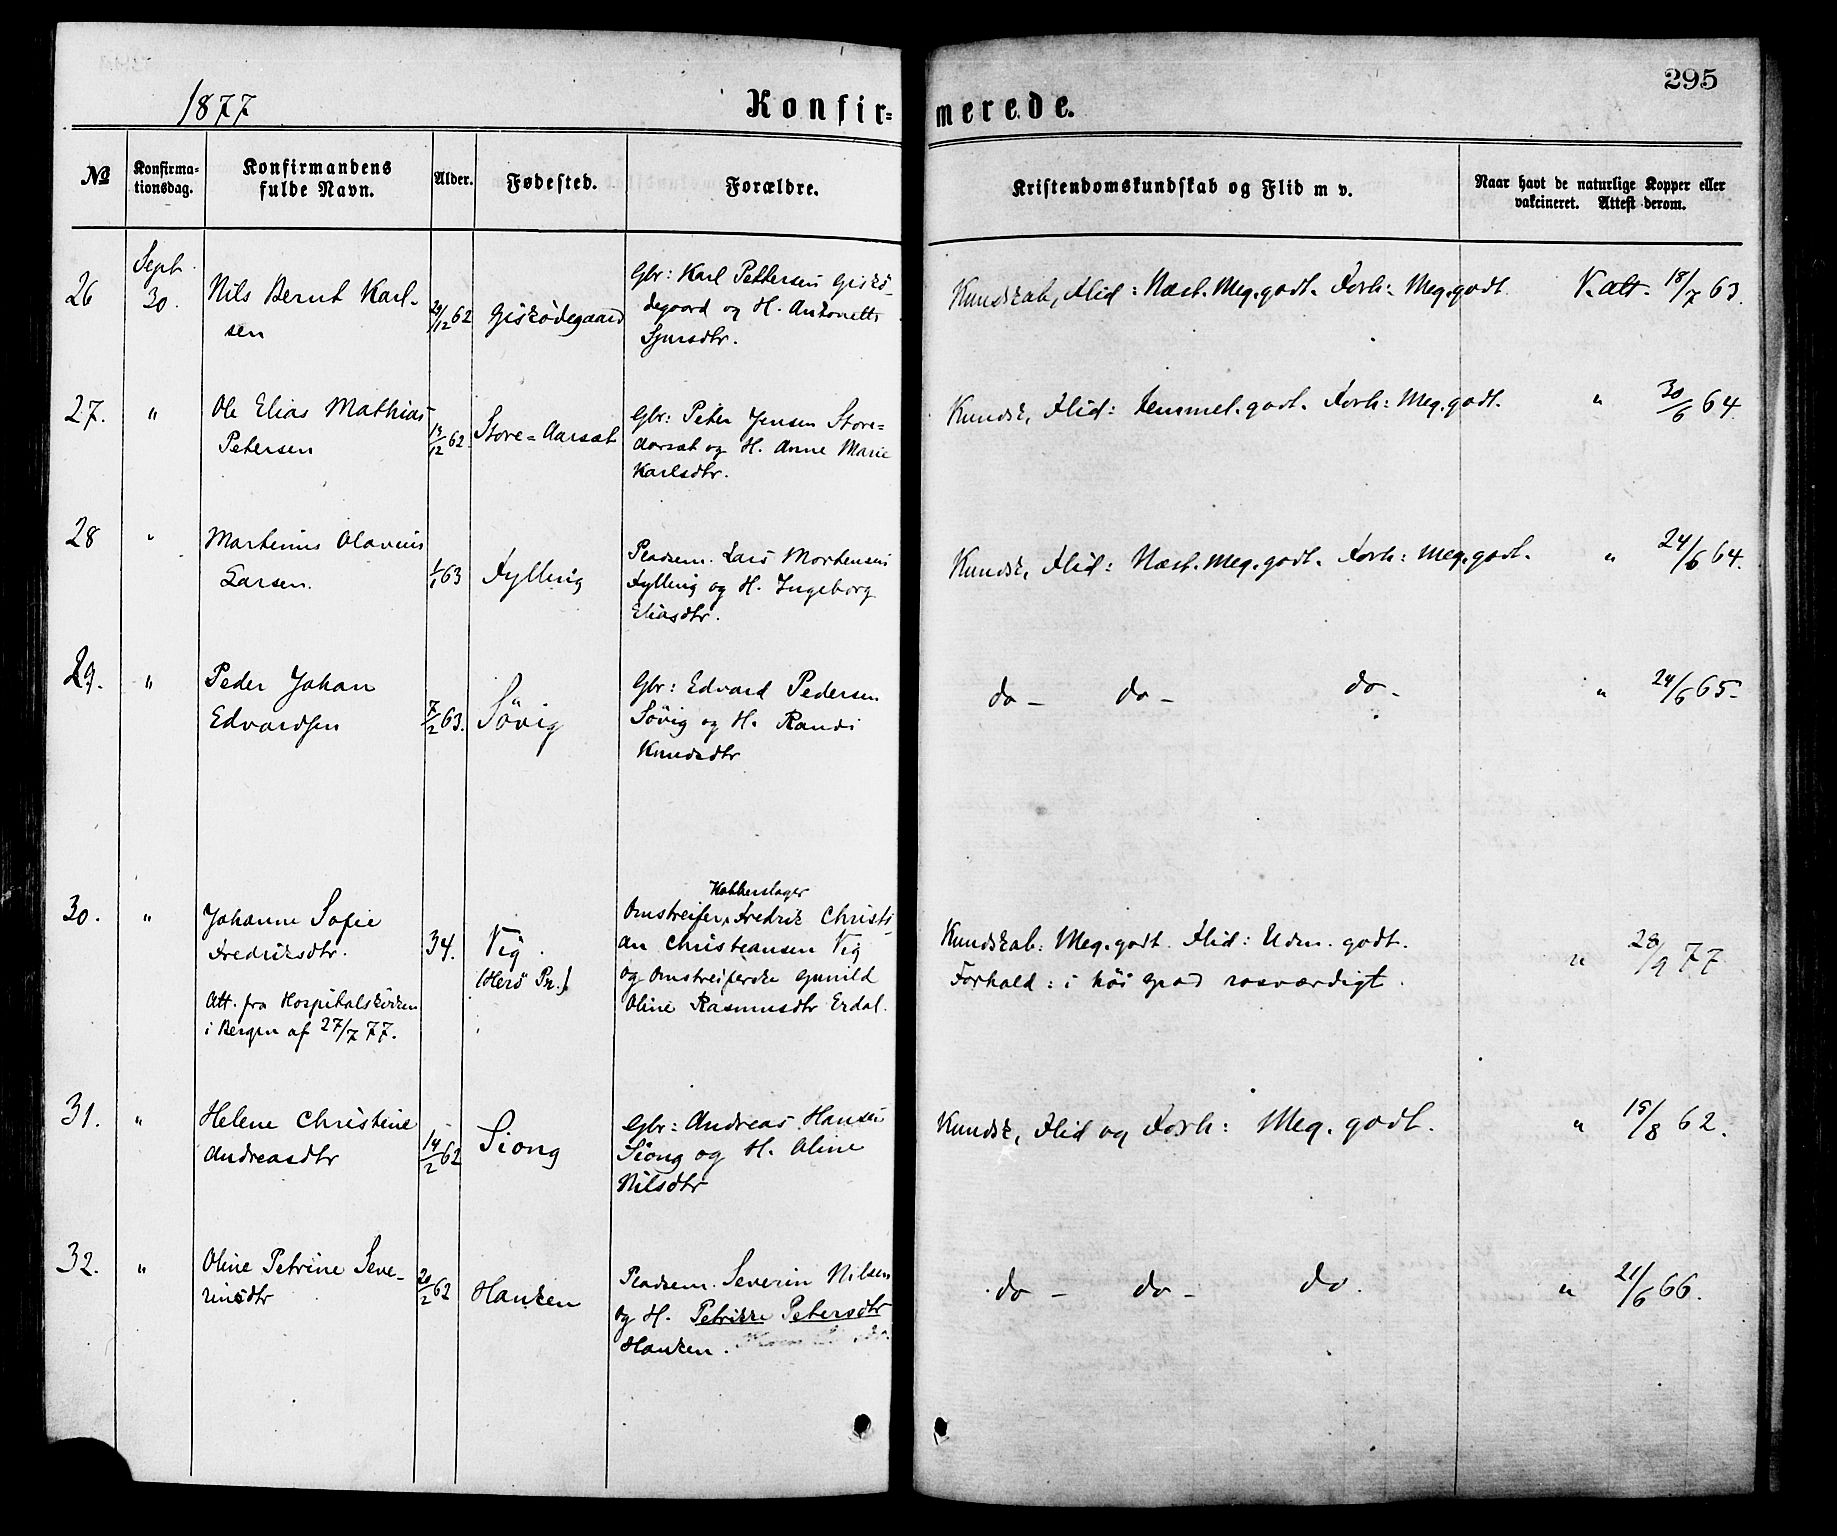 295
1877 Konfir= merede.
№ Konfirma-tionsdag. Konfirmandens fulde Navn. Alder. Fødested. Forældre. Kristendomskundskab og Flid m v. Naar havt de naturlige Kopper eller vakcineret. Attest derom.
26 Sept 30. Nils Bernt Karl-
sen
12 62 Giskødegaard
Gbr: Karl Pettersen Giskø-
degaard og H. Antonette
Kundskab, Flid: Næst. Meg. godt. Forh: Meg. godt. V. att. 18/7 63.
27. " Ole Elias Mathias
Petersen
13/12 62. Store=Aarsæt
Gbr: Peter Jensen Store=
Aarsæt og H. Anne Marie
Karlsdtr.
Kundsk, Flid: Temmel. godt. Forh: Meg. godt. " 30/6 64.
28 " Martinus Olavius
Larsen.
1/1 63 Fylling
Pladsem. Lars Mortensen
Fylling og H. Ingeborg
Eliasdtr.
Kundsk, Flid: Næst. Meg. godt. Forh: Meg. godt. " 24/6 64.
29. " Peder Johan
Edvardsen
7/2 63. Søvig
Gbr: Edvard Pedersen
Søvig og H. Randi
Knudsdtr
do - do - do - " 24/6 65.
30. " Johanne Sofie
Fredriksdtr.
Att. fra Hospitalskirken
i Bergen af 27/7 77.
34. Vig.
(Herø Pr.)
Kobberslager
Omstreifer, Fredrik Christi-
an Christeansen Vig
og Omstreiferske Gunild
Oline Rasmusdtr Erdal.
Kundskab: Meg. godt. Flid: Udm. godt.
Forhold: i høi Grad rosværdigt.
" 28/9 77
31. " Helene Christine
Andreasdtr
14/2 62 Siong
Gbr: Andreas Hansen
Siong og H. Oline
Nilsdtr
Kundsk, Flid og Forh: Meg. godt. " 15/8 62.
32. " Oline Petrine Seve-
rinsdtr
20/2 62 Hanken
Pladsem. Severin Nilsen
og H. Petrikke Petersdtr
Hanken.
do - do - do. " 21/6 66.